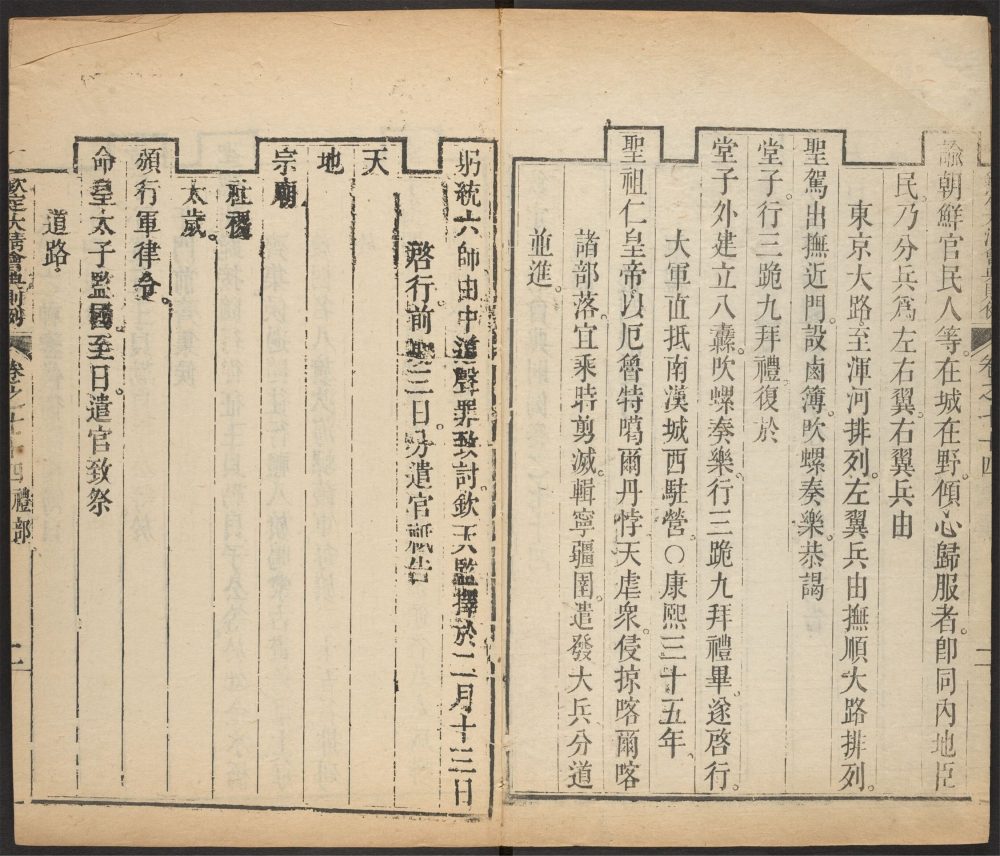 諭朝鮮官民人等。在城在野。傾心歸服者。卽同內地臣
民。乃分兵爲左右翼。右翼兵由
東京大路。至渾河排列。左翼兵由撫順大路排列。
聖駕出撫近門。設鹵簿。吹螺奏樂。恭謁
堂子。行三跪九拜禮。復於
堂子外建立八纛。吹螺奏樂。行三跪九拜禮畢。遂啓行。
大軍直抵南漢城西駐營。○康熙三十五年。
聖祖仁皇帝以厄魯特噶爾丹悖天虐衆。侵掠喀爾喀
諸部落。宜乘時剪滅。輯寧疆圉。遣發大兵。分道
並進。
躬統六師由中道聲罪致討。欽天監擇於二月十三日
啓行。前期三日。分遣官祗告
天
地
宗廟
社稷
太歲。
頒行軍律令。
命皇太子監國。至日。遣官致祭
道路。
欽定大清會典則例 卷之七十四 禮部 二